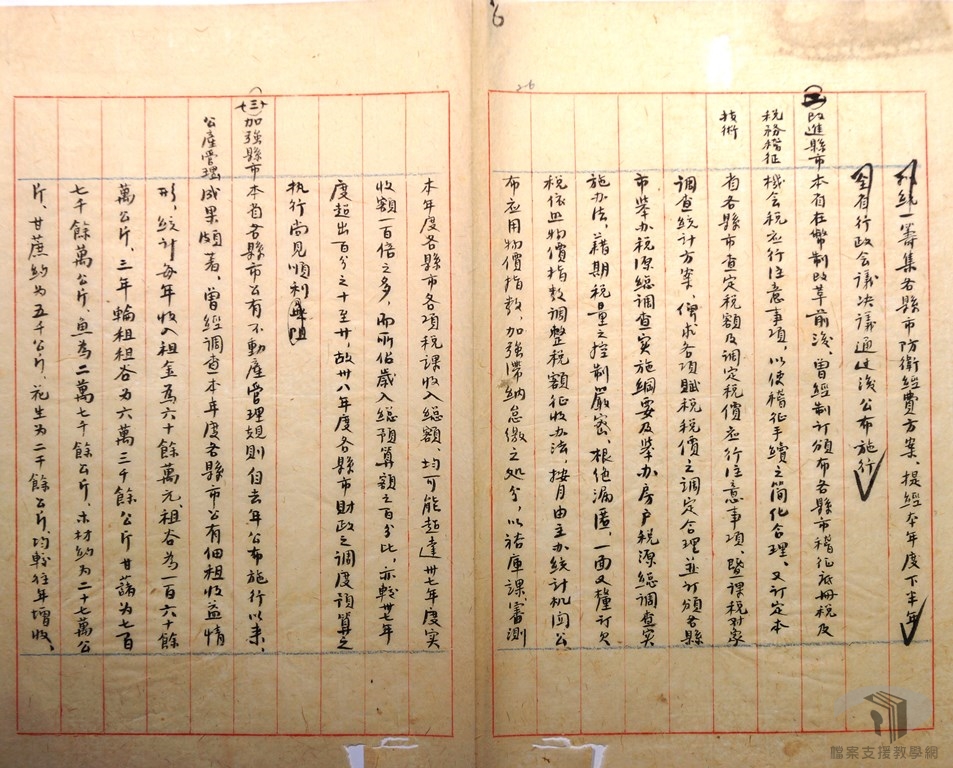 6
26
外統一籌集各縣市防衛經費方案、提經本年度下半年
全省行政会議决議通过後公布施行
(二)改進縣市稅務稽征技術
本省在幣制改革前後、曾經制訂頒布各縣市稽征底冊稅及
機会稅应行注意事項、以便稽征手續之簡化合理、又訂定本
省各縣市查定稅額及調定稅價应行注意事項、暨課稅对象
調查統計方案、俾求各項賦稅稅價之調定合理並訂頒各縣
市举办稅源總調查实施綱要及举办房户稅源總調查实
施办法、藉期稅量之控制嚴密、根絶漏匿、一面又釐訂欠
稅依照物價指数調整稅額征收办法、按月由主办統計机関公
布应用物價指数、加強滯納怠繳之处分、以裕庫課、審測
本年度各縣市各項稅課收入總額、均可能超達卅七年度实
收額一百倍之多、而所佔歲入總預算額之百分比、亦較卅七年
度超出百分之十至廿、故卅八年度各縣市財政之調度預算之
执行尚見順利
(三)加強縣市公產管理
本省各縣市公有不動產管理規則自去年公布施行以来、
成果頗著、曾經調查本年度各縣市公有佃租收益情
形、統計每年收入租金為六十餘萬元、租谷為一百六十餘
萬公斤、三年輪租租谷为六萬三千餘公斤甘藷为七百
七千餘萬公斤、魚為二萬七千餘公斤、木材約为二十七萬公
斤、甘蔗約为五千公斤、花生为二千餘公斤、均較往年增收、
檔案支援教學網